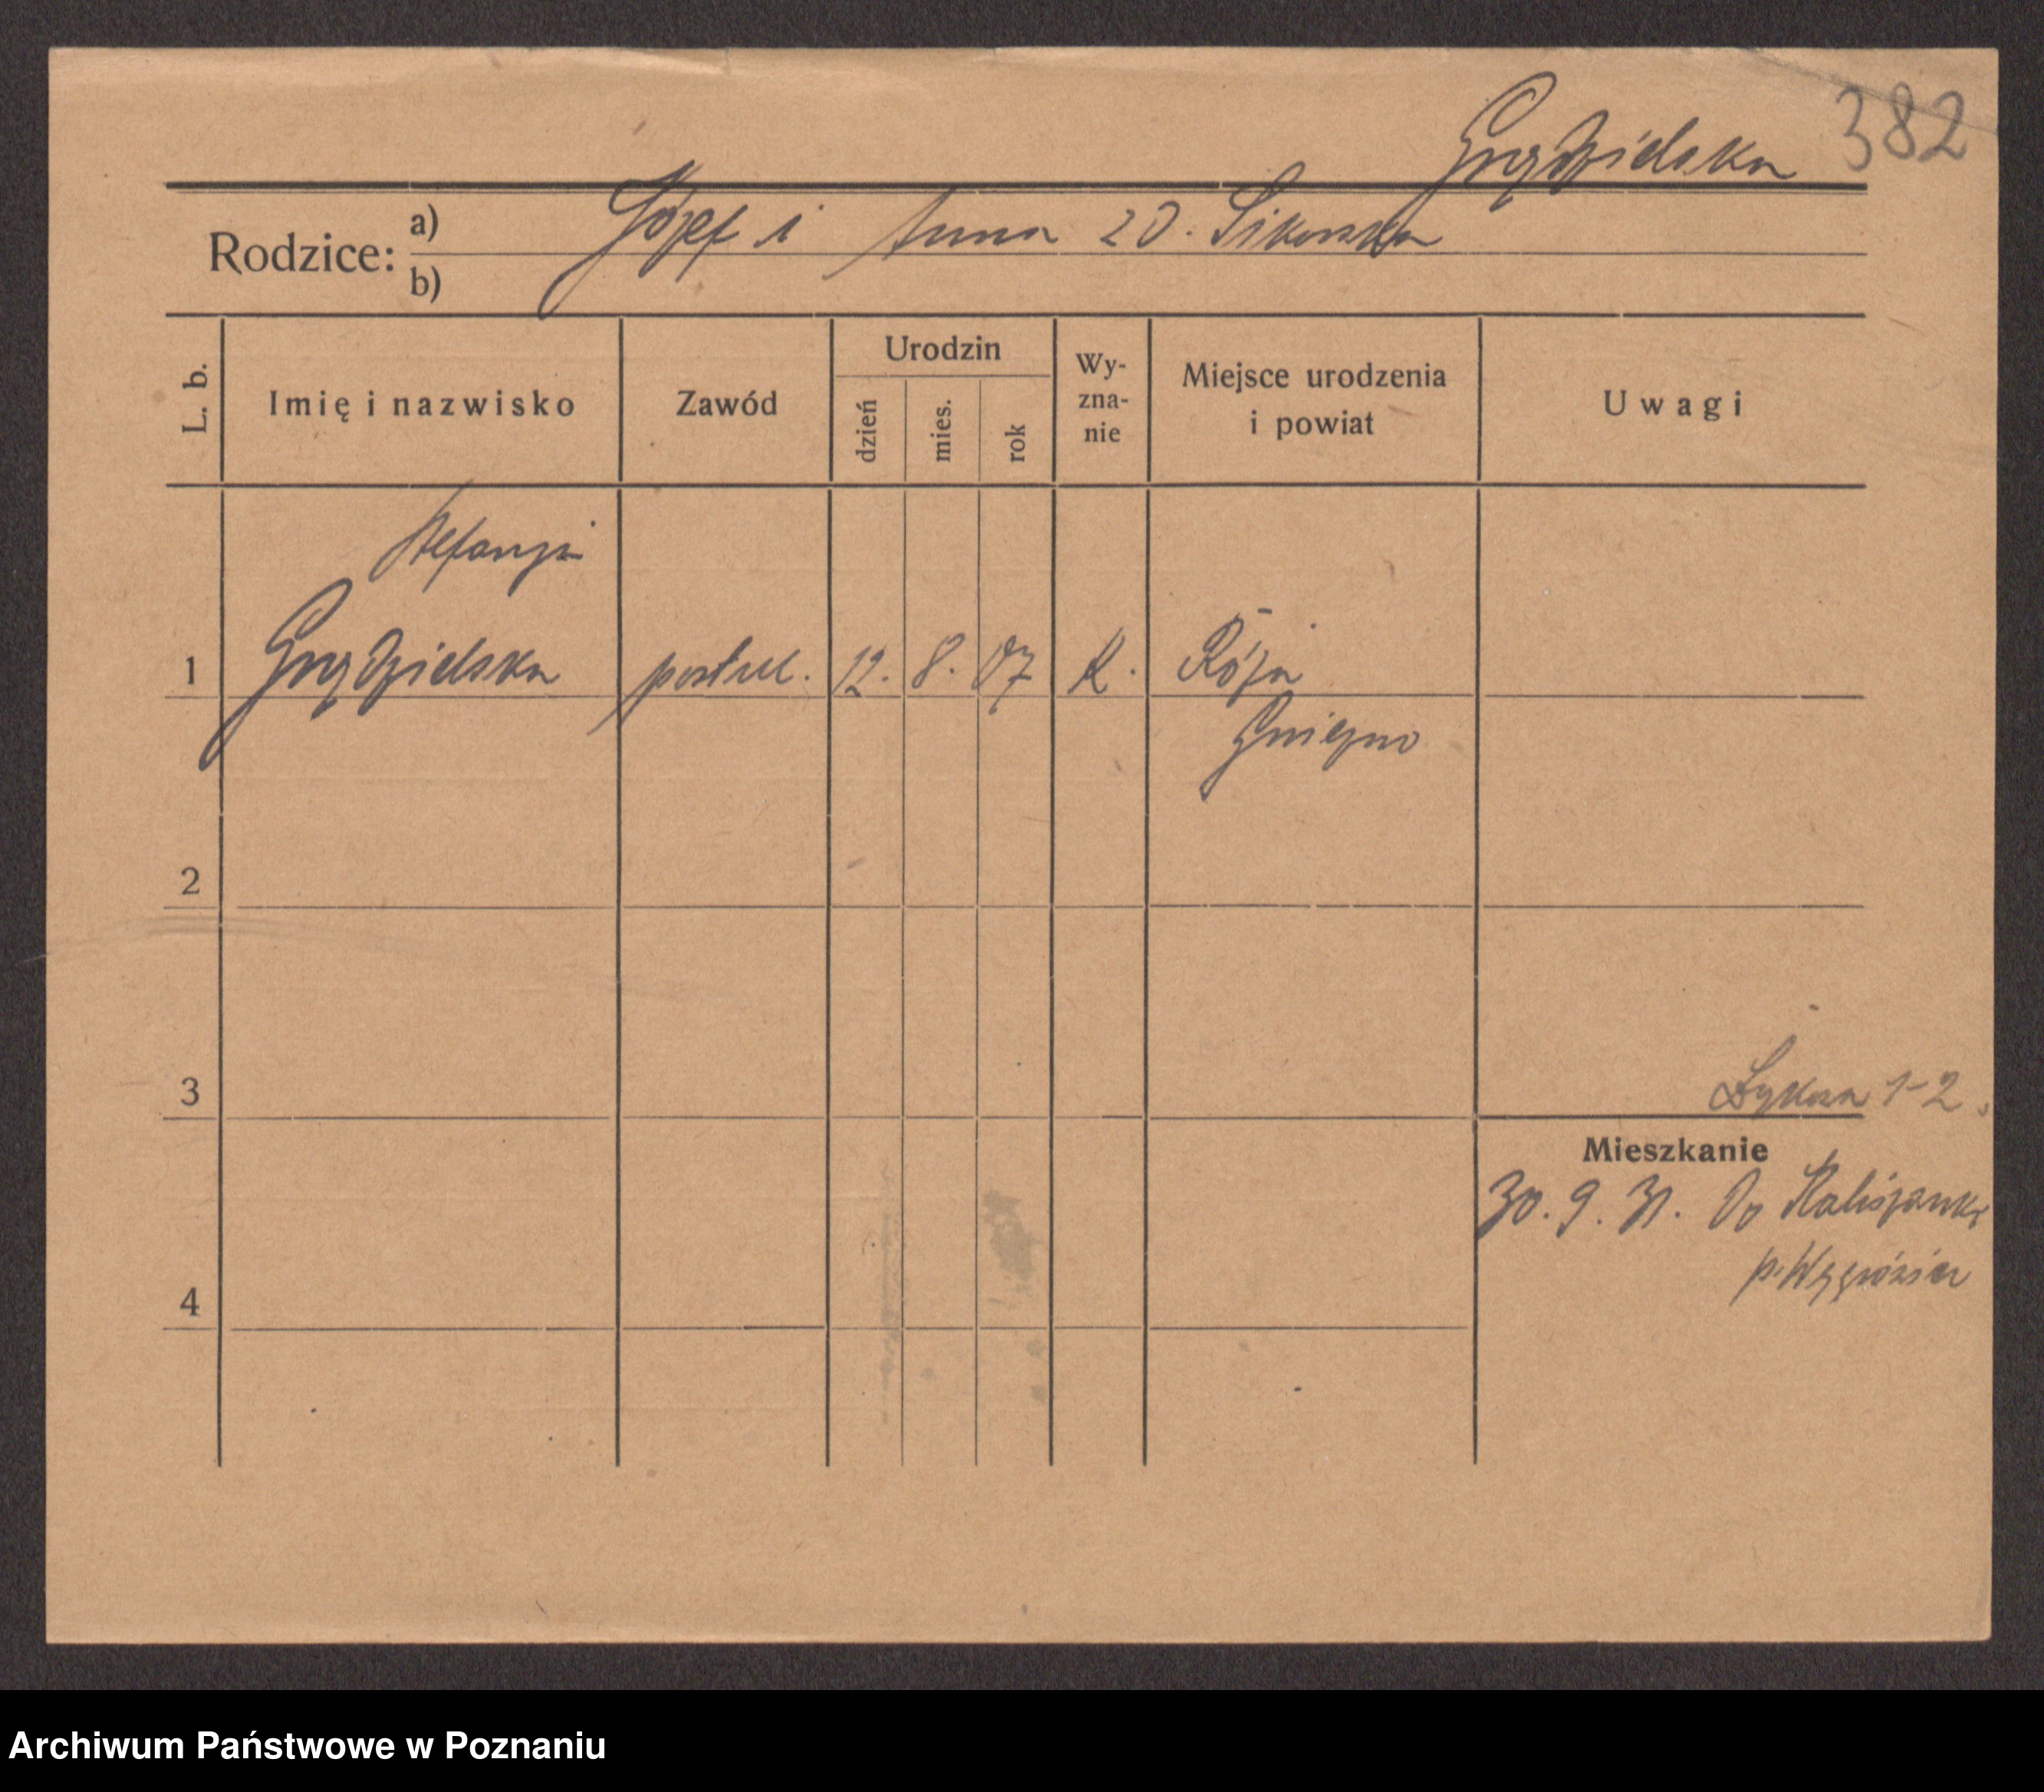 382
Grądzielska
Rodzice: a) Józef i Anna zd. Sikorska
b)
L. b.
Imię i nazwisko
Zawód
Urodzin
dzień
mies.
rok
Wy-
zna-
nie
Miejsce urodzenia
i powiat
Uwagi
Stefanja
1 Grądzielska posłul. 12. 8. 07 K. Róża
Gniezno
2
3
1-2.
Mieszkanie
30. 9. 31. Do Kaliszank
p.
4
Archiwum Państwowe w Poznaniu